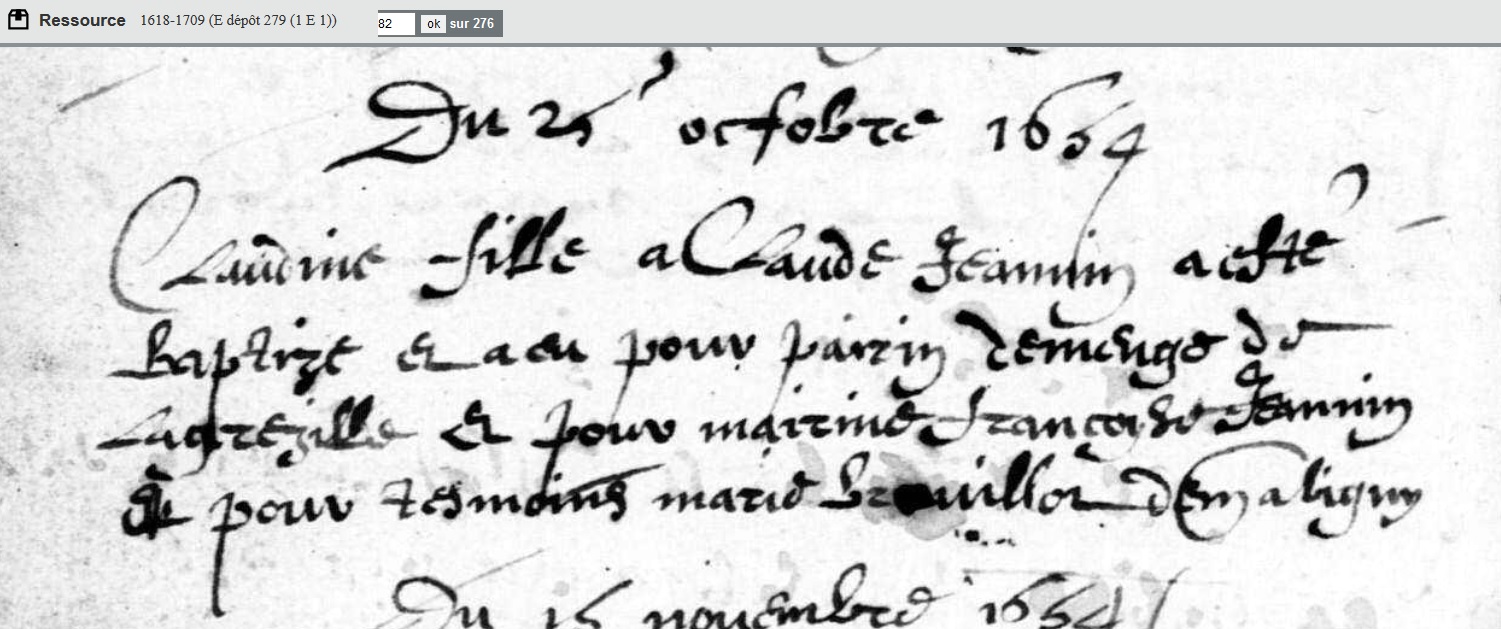 Ressource 1618-1709 (E dépôt 279 (1 E 1)) 82 ok sur 276
Du 25 octobre 1654
Claudine fille a Claude Jeannin a esté
Baptizé et a eu pour parrin demenge de
Lagrezille et pour marrine françoise Jeannin
et pour tesmoins marie brouillot de maligny
Du 15 novembre 1654